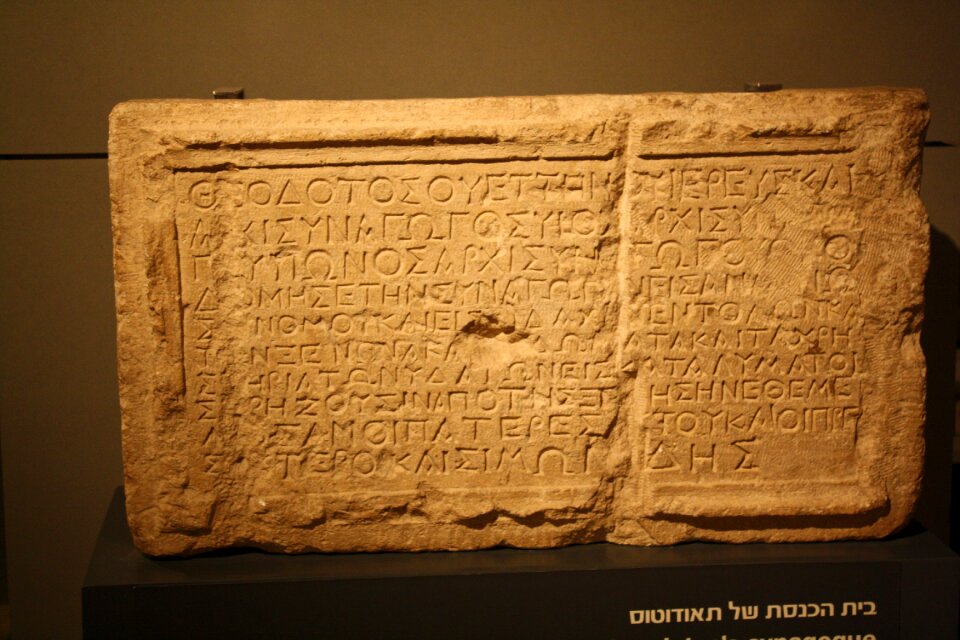 ΘΕΟΔΟΤΟΣ ΟΥΕΤΤΗΝΟΥ ΙΕΡΕΥΣ ΚΑΙ
ΑΡΧΙΣΥΝΑΓΩΓΟΣ ΥΙΟΣ ΑΡΧΙΣΥ
ΥΙΩΝΟΣ ΑΡΧΙΣΥΝ ΓΩΓΟΥ
ΔΟΜΗΣΕ ΤΗΝ ΣΥΝΑΓΩΓΗΝ ΕΙΣ ΑΝΑ
ΝΟΜΟΥ ΚΑΙ ΕΙΣ ΔΙΔΑΧΗΝ ΕΝΤΟΛΩΝ ΚΑΙ
ΤΟΝ ΞΕΝΩΝΑ ΚΑΙ ΤΑ ΔΩΜΑΤΑ ΚΑΙ ΤΑ ΧΡΗ
ΣΤΗΡΙΑ ΤΩΝ ΥΔΑΤΩΝ ΕΙΣ ΚΑΤΑΛΥΜΑ ΤΟΙ
Σ ΧΡΗΖΟΥΣΙΝ ΑΠΟ ΤΗΣ ΞΕΝΗΣ ΗΝ ΕΘΕΜΕ
ΛΙΩΣΑΝ ΟΙ ΠΑΤΕΡΕΣ ΑΥΤΟΥ ΚΑΙ ΟΙ ΠΡΕ
ΣΒΥΤΕΡΟΙ ΚΑΙ ΣΙΜΩΝΙΔΗΣ
בית הכנסת של תאודוטוס